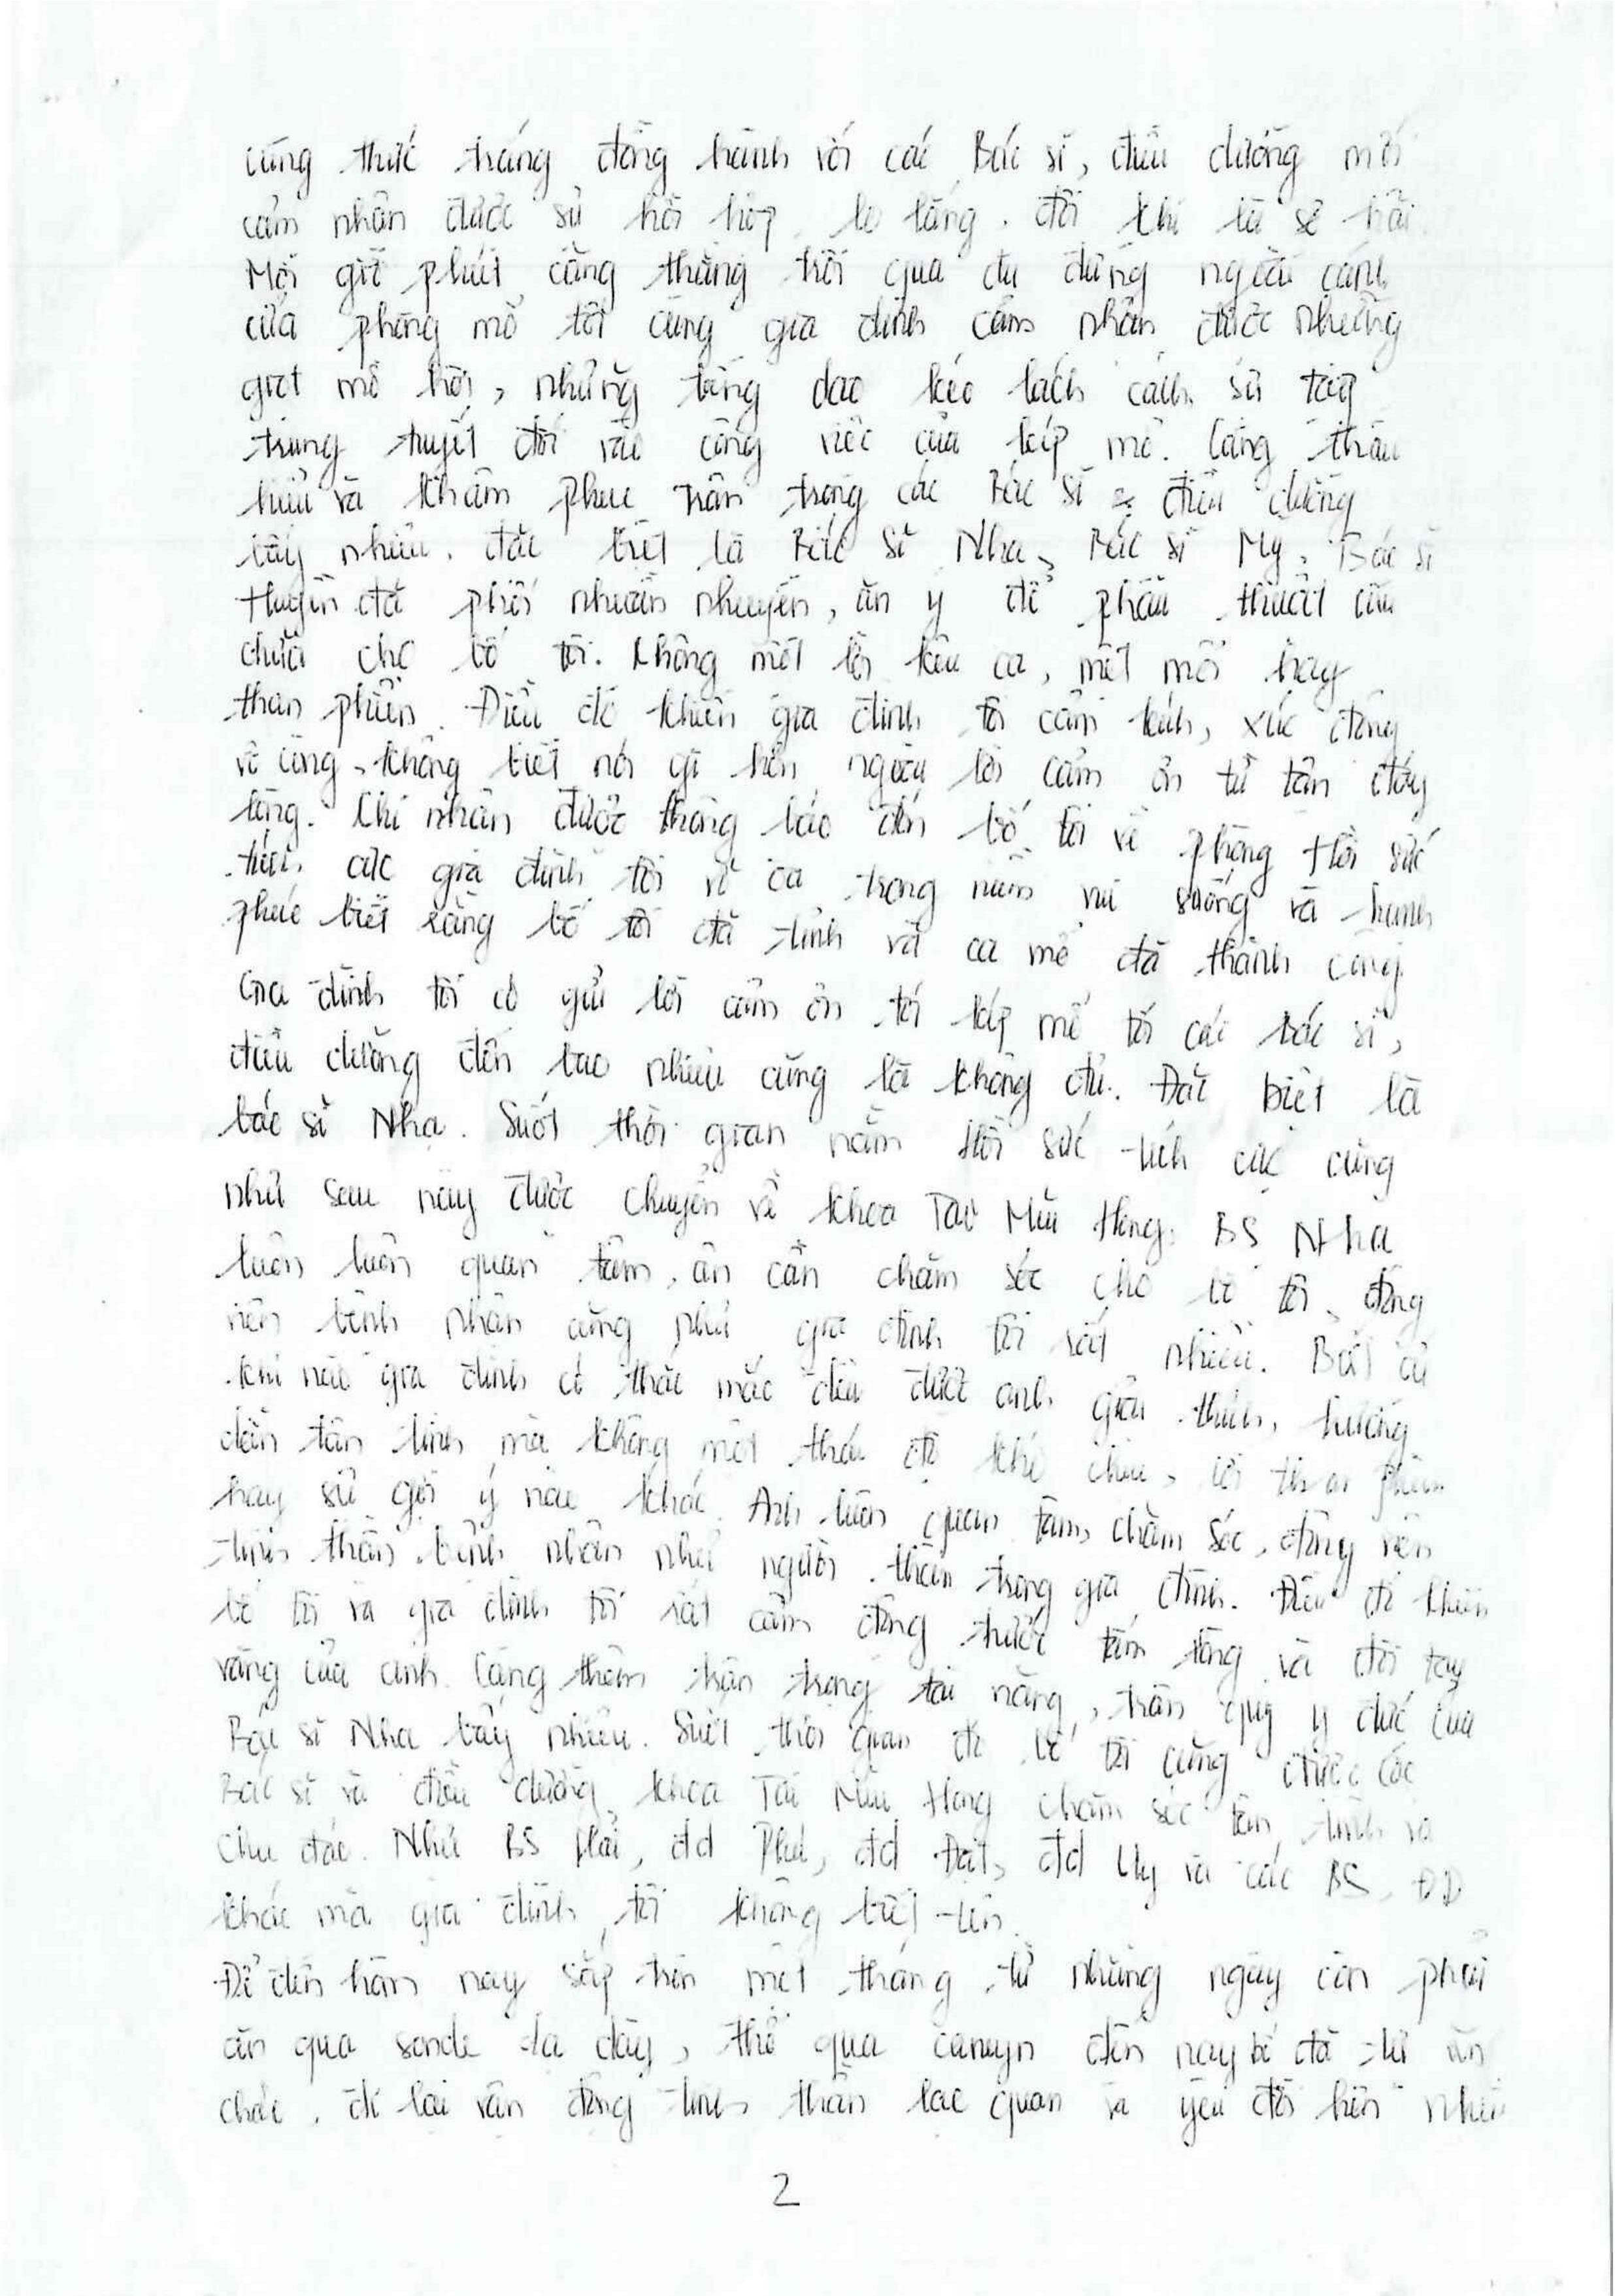 cùng thức trắng đồng hành với các Bác sĩ, điều dưỡng mới
cảm nhận được sự hồi hộp, lo lắng, đôi khi là sợ hãi.
Mỗi giờ phút căng thẳng trôi qua dù đứng ngoài cánh
cửa phòng mổ tôi cùng gia đình cảm nhận được những
giọt mồ hôi, những tiếng dao kéo lách cách, sự tập
trung tuyệt đối vào công việc của kíp mổ. Càng thấu
hiểu và khâm phục trân trọng các Bác sĩ, điều dưỡng
bấy nhiêu. đặc biệt là Bác sĩ Nhạ, Bác sĩ Mỹ, Bác sĩ
Huyền đã phối nhuần nhuyễn, ăn ý để phẫu thuật cứu
chữa cho bố tôi. Không một lời kêu ca, mệt mỏi hay
than phiền. Điều đó khiến gia đình tôi cảm kích, xúc động
vô cùng, không biết nói gì hơn ngoài lời cảm ơn từ tận đáy
lòng. Khi nhận được thông báo đón bố tôi về phòng Hồi sức
tích cực gia đình tôi vỡ oà trong niềm vui sướng và hạnh
phúc biết rằng bố tôi đã tỉnh và ca mổ đã thành công.
Gia đình tôi có gửi lời cảm ơn tới kíp mổ tới các bác sĩ,
điều dưỡng đến bao nhiêu cũng là không đủ. Đặc biệt là
bác sĩ Nhạ. Suốt thời gian nằm Hồi sức tích cực cũng
như sau này được chuyển về khoa Tai Mũi Họng. BS Nhạ
luôn luôn quan tâm, ân cần chăm sóc cho bố tôi, động
viên bệnh nhân cũng như gia đình tôi rất nhiều. Bất cứ
khi nào gia đình có thắc mắc đều được anh giải thích, hướng
dẫn tận tình mà không một thái độ khó chịu, lời than phiền
hay sự gợi ý nào khác. Anh luôn quan tâm, chăm sóc, động viên
tinh thần bệnh nhân như người thân trong gia đình. Điều đó khiến
bố tôi và gia đình tôi rất cảm động trước tấm lòng và đôi tay
vàng của anh. Càng thêm trân trọng tài năng, trân quý y đức của
Bác sĩ Nhạ bấy nhiêu. Suốt thời gian đó bố tôi cũng được các
Bác sĩ và điều dưỡng khoa Tai Mũi Họng chăm sóc tận tình và
chu đáo. Như BS Hải, đd Phú, đd Đạt, đd Uy và các BS, ĐD
khác mà gia đình tôi không biết tên.
Để đến hôm nay sắp tròn một tháng từ những ngày còn phải
ăn qua sonde dạ dày, thở qua canuyn đến nay bố đã tự ăn
cháo, đi lại vận động tinh thần lạc quan và yêu đời hơn nhiều
2